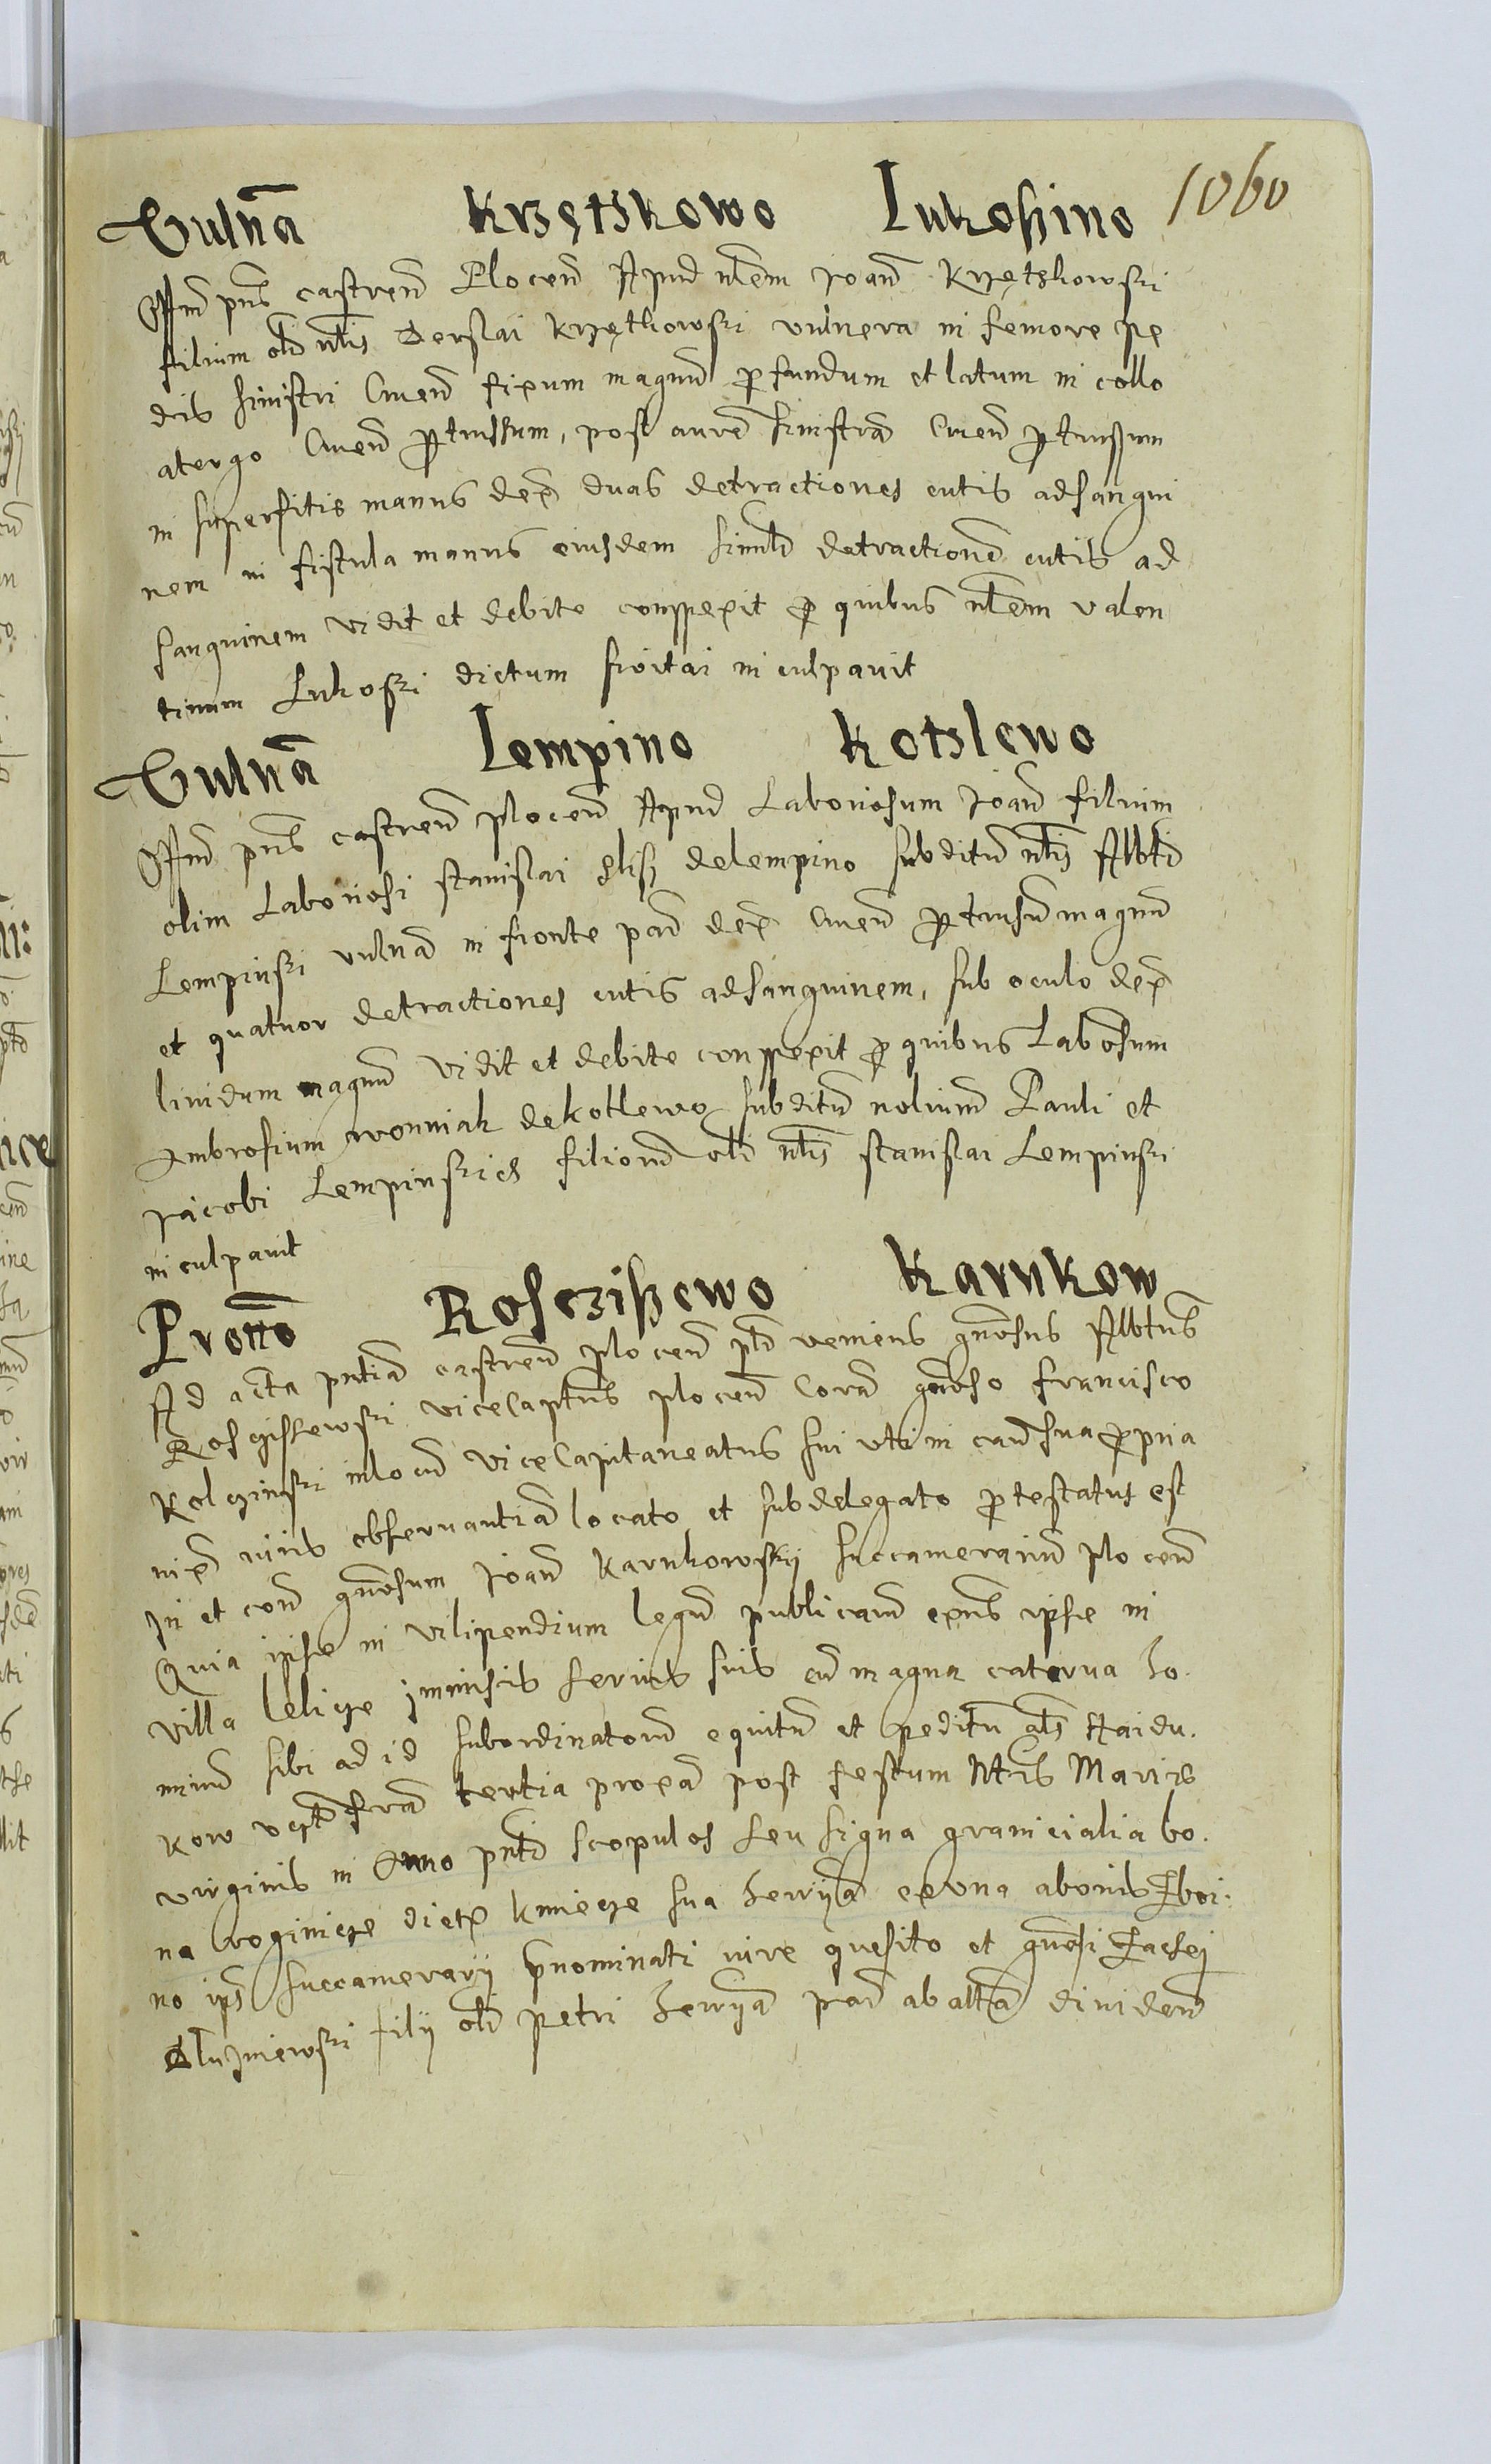 1060
Vulnã Krzętskowo Lukoßino
Offm pns castren Plocen Apud nblem Joan Krzętskowski
filium olim nblis Derslai Krzętkowski vulnera in femore pe
dis sinistri cruen fixum magnu profundum et latum in collo
atergo cruen pertrussum, post aure sinistra cruen pertrussum
in superfitie manus dex duas detractiones cutis adsangui
nem in fistula manus eiusdem simile detractione cutis ad
sanguinem vidit et debite conspexit pro quibus nblem valen
tinum Lukoski dictum in culpavit
Vulnã Lempino Kotslewo
Offm pns castren plocen Apud Laboriosum Joan filium
olim Laboriosi stanislai delempino subditu nblis Albti
Lempinski vulnã in fronte par dex cruen pertrusu magnu
et quatuor detractiones cutis adsanguinem, sub oculo dex
lividum magnu vidit et debite conspexit pro quibus Labosum
Ambrosium wonniak dekotlewo subditu nobilium Pauli et
Jacobi Lempinskies filioru olim nblis stanislai Lempinski
in culpavit
Protto Rosczißewo Karnkow
Ad acta pntia castren plocen psl veniens gnosus Albtus
Rosczissewski viceCaptus plocen Cora gnoso francisco
Kelczinski inlocu viceCapitaneatus sui uti in causa sua propria
iux iuris obseruantia locato et subdelegato protestatus est
In et con gnosum Joan Karnkowskij succamerariu plocen
Quia ipse in vilipendium legu publicaru exns ipse in
villa lelicze immissis seruis suis cu magna caterua ho.
minu sibi ad id subordinatoru equitu et peditu als Haidu.
kow feria tertia proxa post festum Ntis Marie
virginis in Anno pnti scopulos seu signa granicialia bo.
na woginicze dicte kmiecze sua haereditaria exvna abonis Zboi.
no ips succamerarij pnominati iure quesito et gnosi
Sluzniewski filij olim petri par abaltera dividen